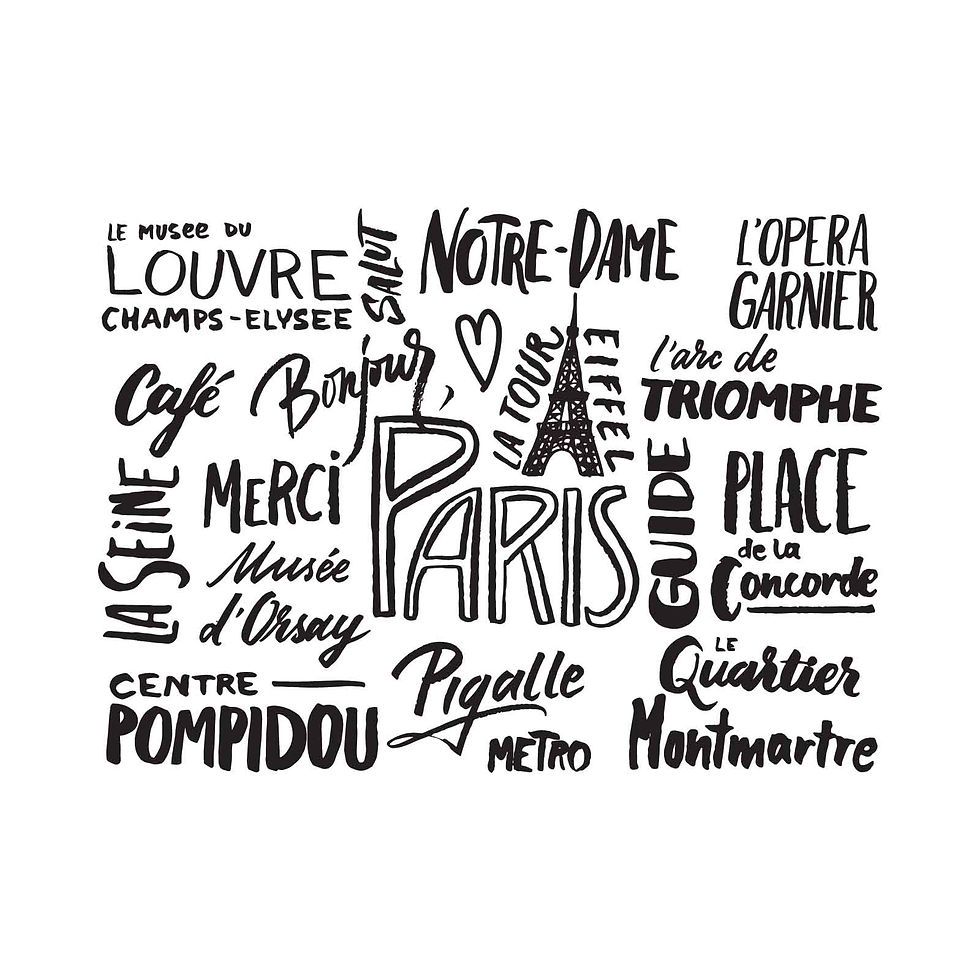 LE MUSEE DU
LOUVRE
CHAMPS-ELYSEE
SALUT
NOTRE-DAME
L'OPERA
GARNIER
Café
Bonjour,
LA TOUR
EIFFEL
l'arc de
TRIOMPHE
LA SEiNE
MERCi
PARIS
GUIDE
PLACE
de la
Concorde
Musée
d'Orsay
CENTRE
POMPIDOU
Pigalle
METRO
LE
Quartier
Montmartre